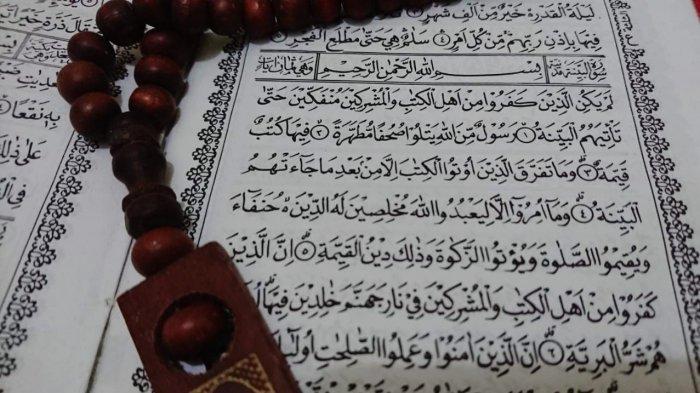 لَيْلَةُ الْقَدْرِ خَيْرٌ مِّنْ اَلْفِ شَهْرٍ
فِيْهَا بِاِذْنِ رَبِّهِمْ مِّنْ كُلِّ اَمْرٍ ٤ سَلٰمٌ هِيَ حَتّٰى مَطْلَعِ الْفَجْرِ ٥
سُوْرَةُ الْبَيِّنَةِ مَدَنِيَّة بِسْمِ اللّٰهِ الرَّحْمٰنِ الرَّحِيْمِ وَهِيَ ثَمَانُ اٰيَات
لَمْ يَكُنِ الَّذِيْنَ كَفَرُوْا مِنْ اَهْلِ الْكِتٰبِ وَالْمُشْرِكِيْنَ مُنْفَكِّيْنَ حَتّٰى
تَأْتِيَهُمُ الْبَيِّنَةُ ١ رَسُوْلٌ مِّنَ اللّٰهِ يَتْلُوْا صُحُفًا مُّطَهَّرَةً ٢ فِيْهَا كُتُبٌ
قَيِّمَةٌ ٣ وَمَا تَفَرَّقَ الَّذِيْنَ اُوْتُوا الْكِتٰبَ اِلَّا مِنْ بَعْدِ مَا جَاۤءَتْهُمُ
الْبَيِّنَةُ ٤ وَمَآ اُمِرُوْٓا اِلَّا لِيَعْبُدُوا اللّٰهَ مُخْلِصِيْنَ لَهُ الدِّيْنَ حُنَفَاۤءَ
وَيُقِيْمُوا الصَّلٰوةَ وَيُؤْتُوا الزَّكٰوةَ وَذٰلِكَ دِيْنُ الْقَيِّمَةِ ٥ اِنَّ الَّذِيْنَ
كَفَرُوْا مِنْ اَهْلِ الْكِتٰبِ وَالْمُشْرِكِيْنَ فِيْ نَارِ جَهَنَّمَ خٰلِدِيْنَ فِيْهَا
هُمْ شَرُّ الْبَرِيَّةِ ٦ اِنَّ الَّذِيْنَ اٰمَنُوْا وَعَمِلُوا الصّٰلِحٰتِ
بِهٖ نَقْعًا
عَلٰى ذٰلِكَ